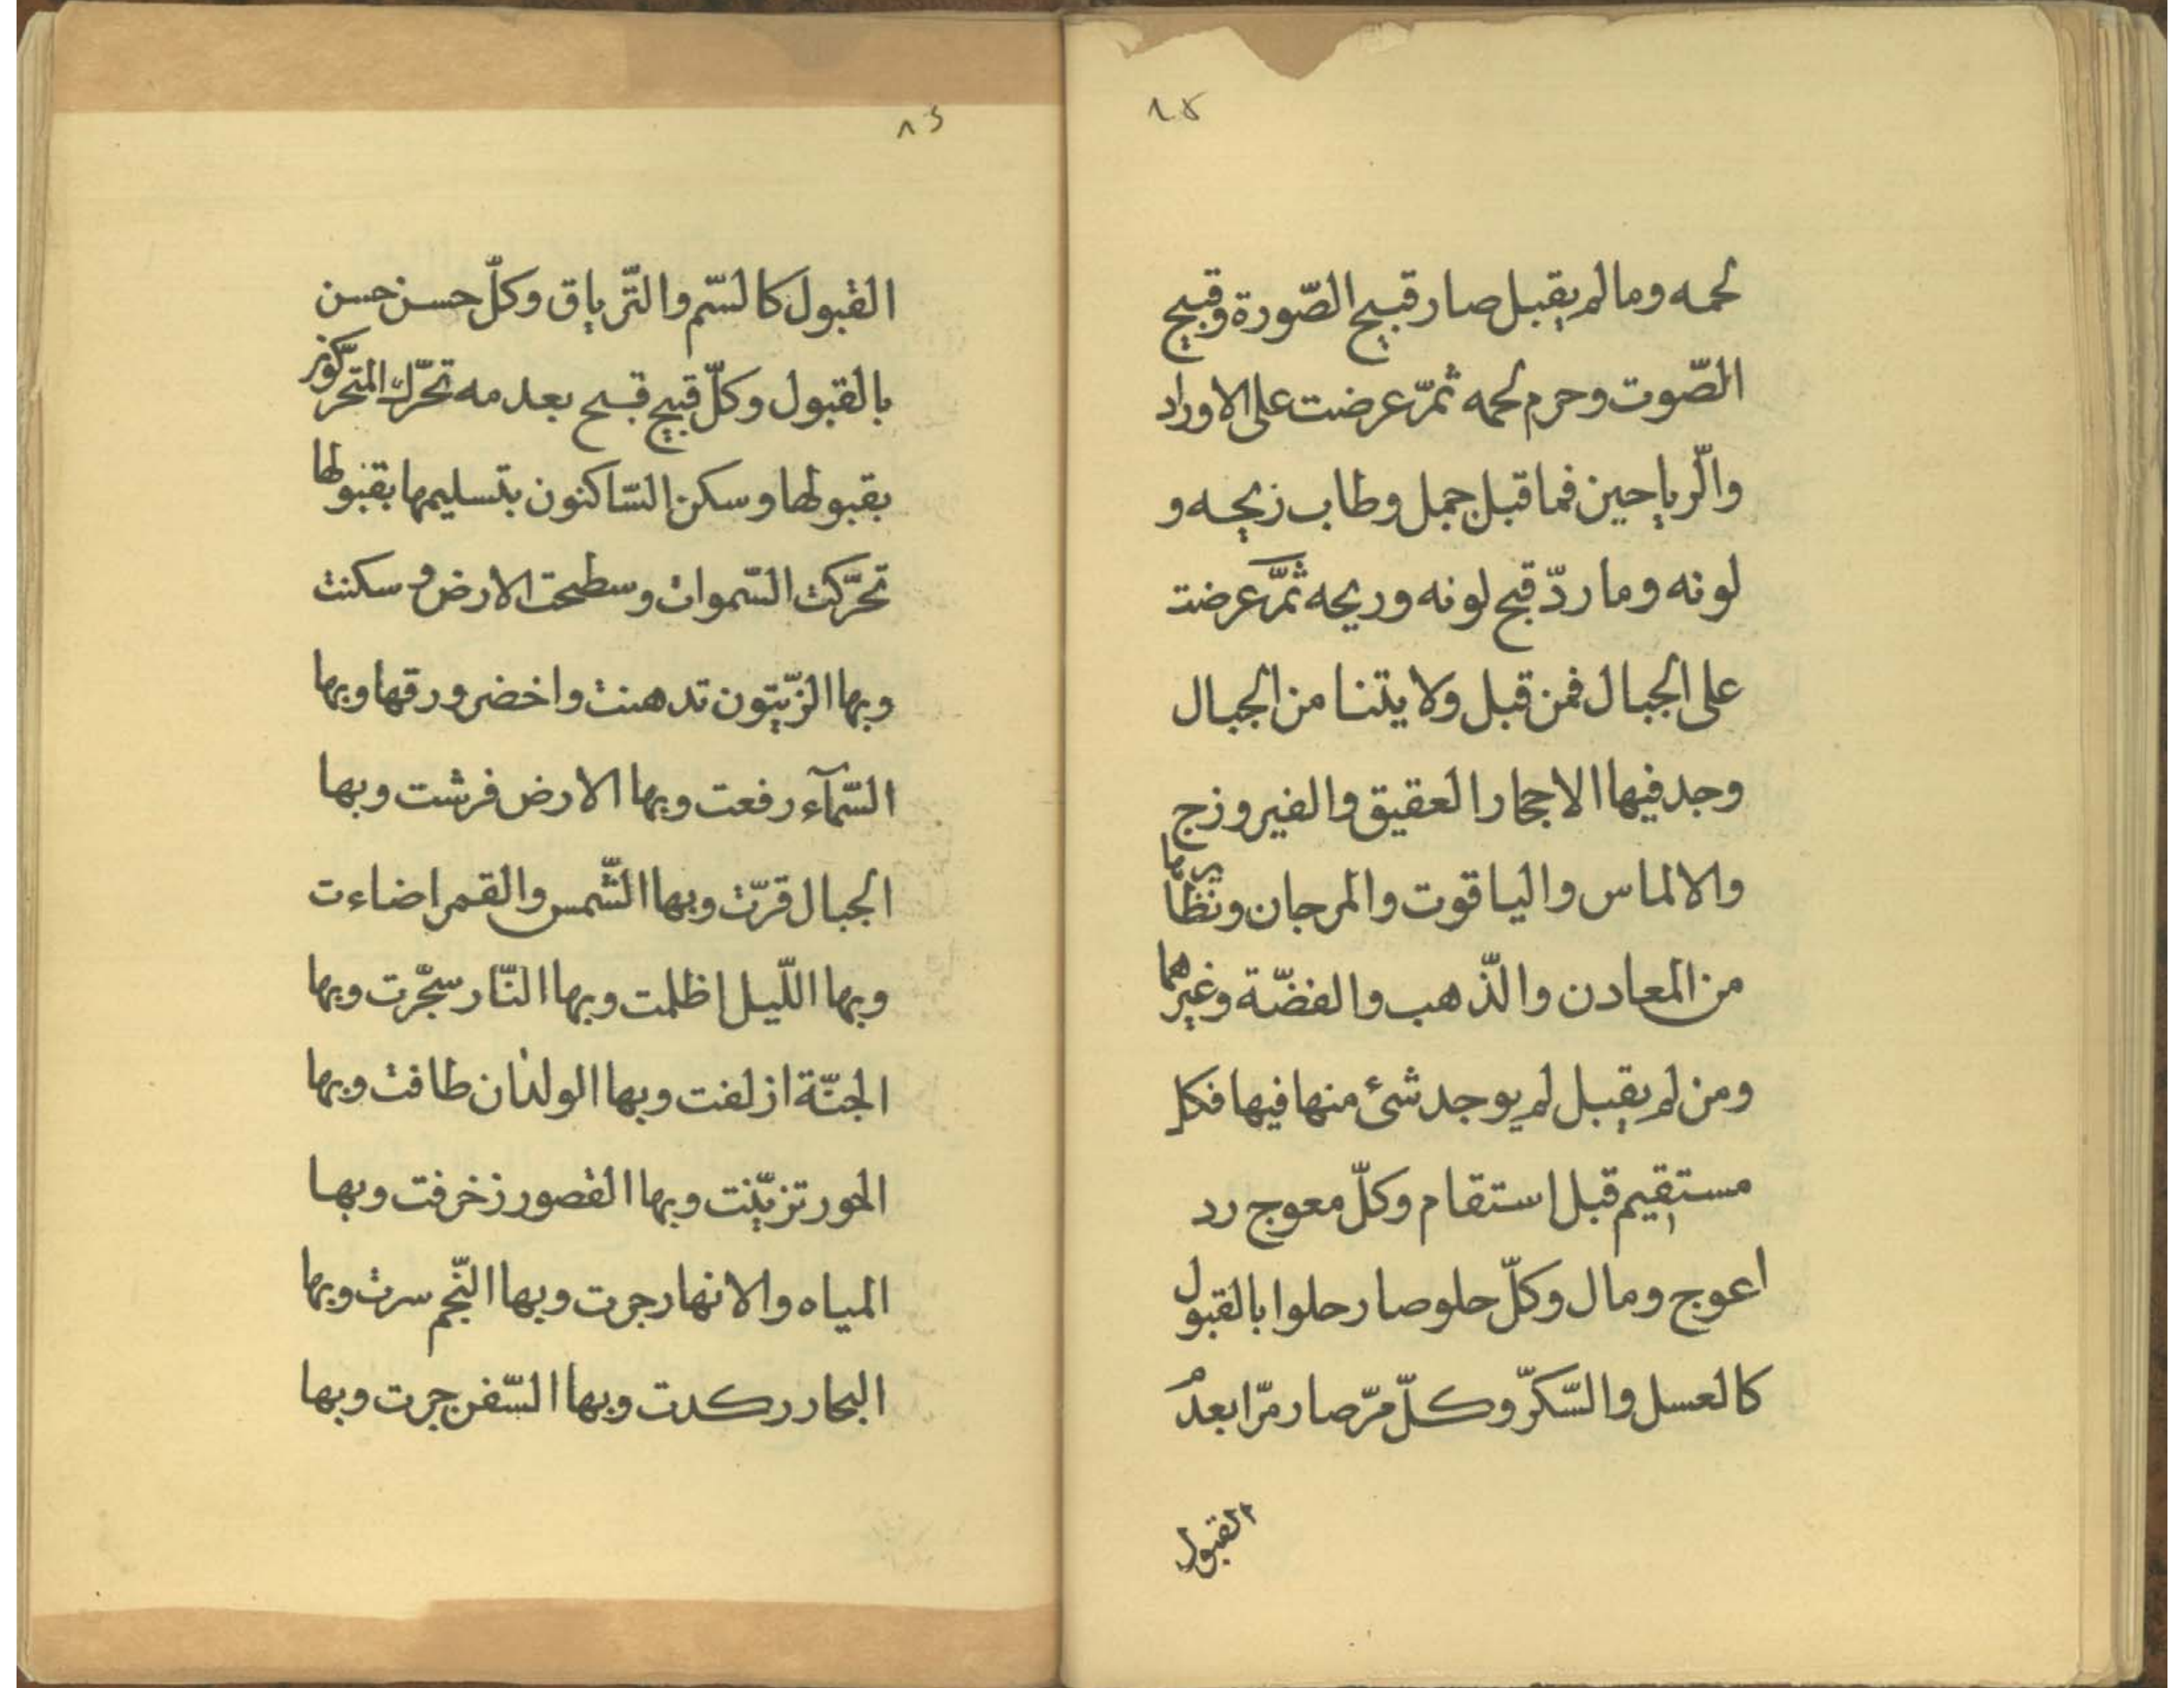 لحمه وما لم يقبل صار قبيح الصّورة وقبيح
الصّوت وحرم لحمه ثمّ عرضت على الاوراد
والّرياحين فما قبل جمل وطاب زيحه و
لونه وما ردّ قبح لونه وريحه ثمّ عرضت
على الجبال فمن قبل ولايتنا من الجبال
وجد فيها الاحجار العقيق والفيروزج
والالماس والياقوت والمرجان ونظايرها
من المعادن والذّهب والفضّة وغيرهما
ومن لم يقبل لم يوجد شئ منها فيها فكل
مستقيم قبل استقام وكلّ معوج رد
اعوج ومال وكلّ حلو صار حلوا بالقبول
كالعسل والسّكرّ وكلّ مرّ صار مرّا بعدم
القبول
القبول كالسّم والتّرياق وكلّ حسن حسن
بالقبول وكلّ قبيح قبح بعدمه تحرّك المتحرّكون
بقبولها وسكن السّاكنون بتسليمها بقبولها
تحرّكت السّموات وسطحت الارض وسكنت
وبها الزّيتون تدهنت واخضر ورقها وبها
السّمآء رفعت وبها الارض فرشت وبها
الجبال قرّت وبها الشّمس والقمر اضاءت
وبها اللّيل اظلمت وبها النّار سجّرت وبها
الجنّة ازلفت وبها الولدان طافت وبها
الحور تزيّنت وبها القصور زخرفت وبها
المياه والانهار جرت وبها النّجم سرت وبها
البحار ركدت وبها السّفن جرت وبها